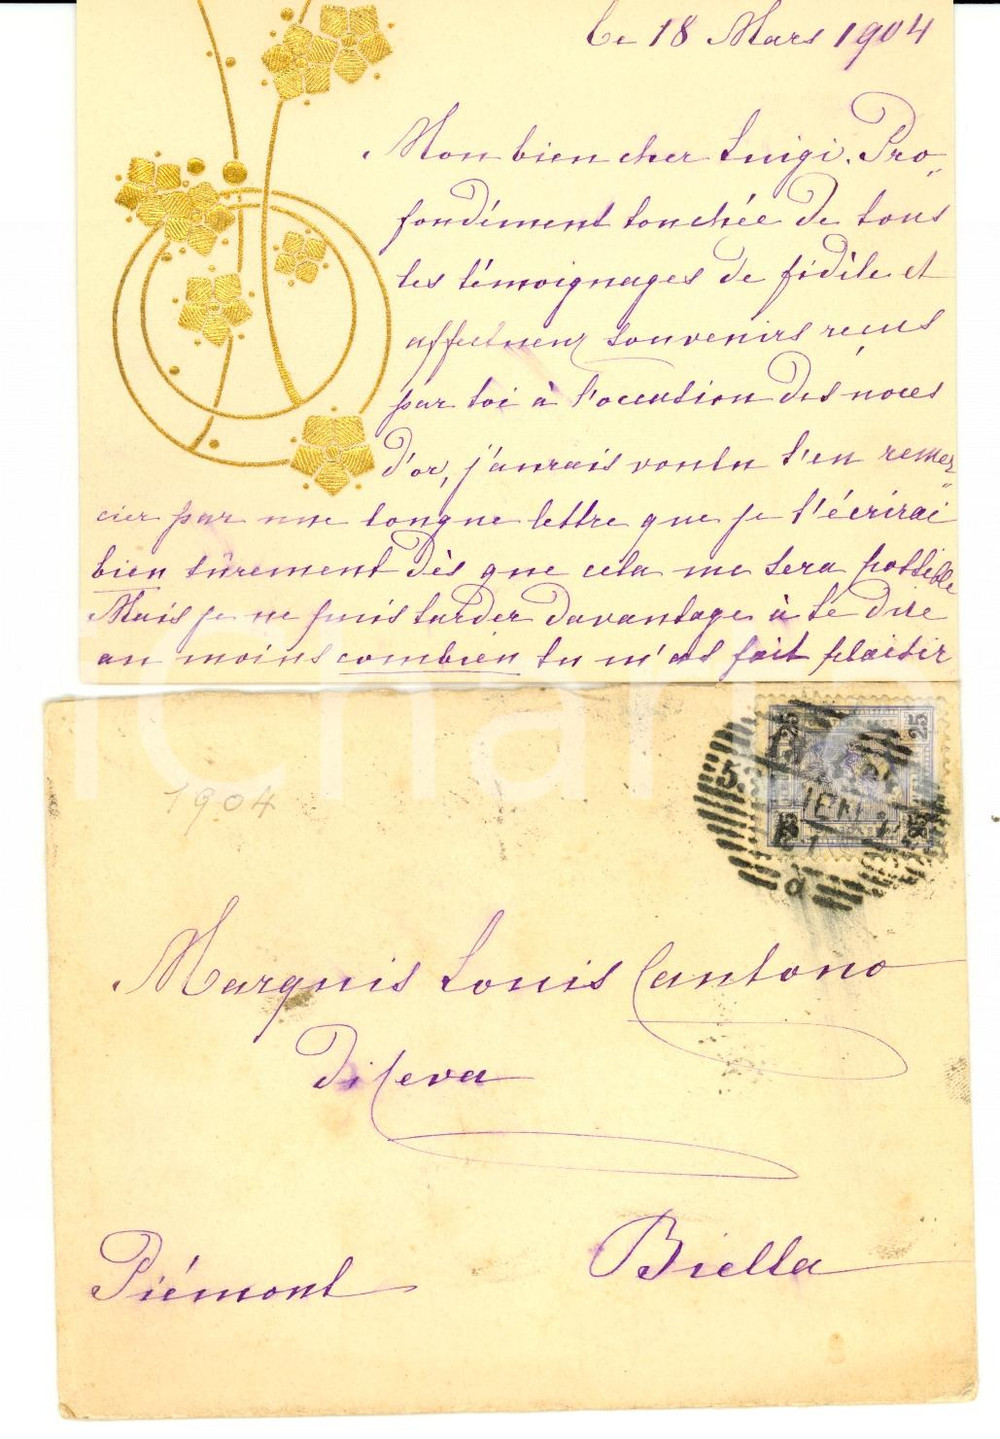 Le 18 Mars 1904
Mon bien cher Luigi. Pro-
fondément touchée de tous
les témoignages de fidèle et
affectueux souvenirs reçus
par toi à l'occasion des noces
d'or, j'aurais voulu t'en remer-
cier par une longue lettre que je t'écrirai
bien sûrement dès que cela me sera possible
Mais je ne puis tarder davantage à te dire
au moins combien tu m'as fait plaisir
1904
25
25
25
25
Marquis Louis Cantono
di Ceva
Biella
Piémont